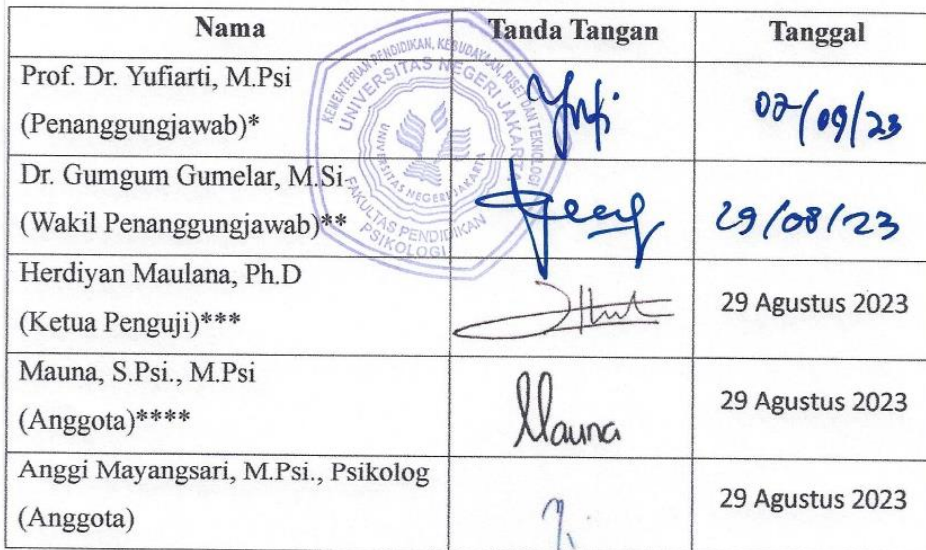 Nama Tanda Tangan Tanggal
Prof. Dr. Yufiarti, M.Psi
(Penanggungjawab)*
Dr. Gumgum Gumelar, M.Si
(Wakil Penanggungjawab)** 29/08/23
Herdiyan Maulana, Ph.D
(Ketua Penguji)*** 29 Agustus 2023
Mauna, S.Psi., M.Psi
(Anggota)**** Mauna 29 Agustus 2023
Anggi Mayangsari, M.Psi., Psikolog
(Anggota) 29 Agustus 2023
KEMENTERIAN PENDIDIKAN, KEBUDAYAAN, RISET DAN TEKNOLOGI
UNIVERSITAS NEGERI JAKARTA
UNIVERSITAS NEGERI JAKARTA
FAKULTAS PENDIDIKAN
PSIKOLOGI